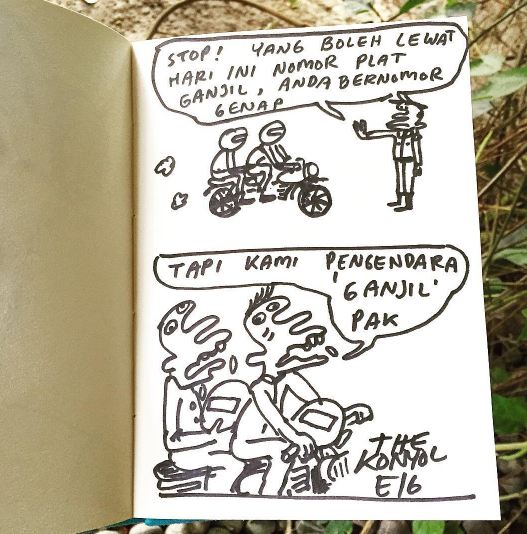 STOP! YANG BOLEH LEWAT
HARI INI NOMOR PLAT
GANJIL, ANDA BERNOMOR
GENAP
TAPI KAMI PENGENDARA
'GANJIL'
PAK
THE
KONYOL
E/6